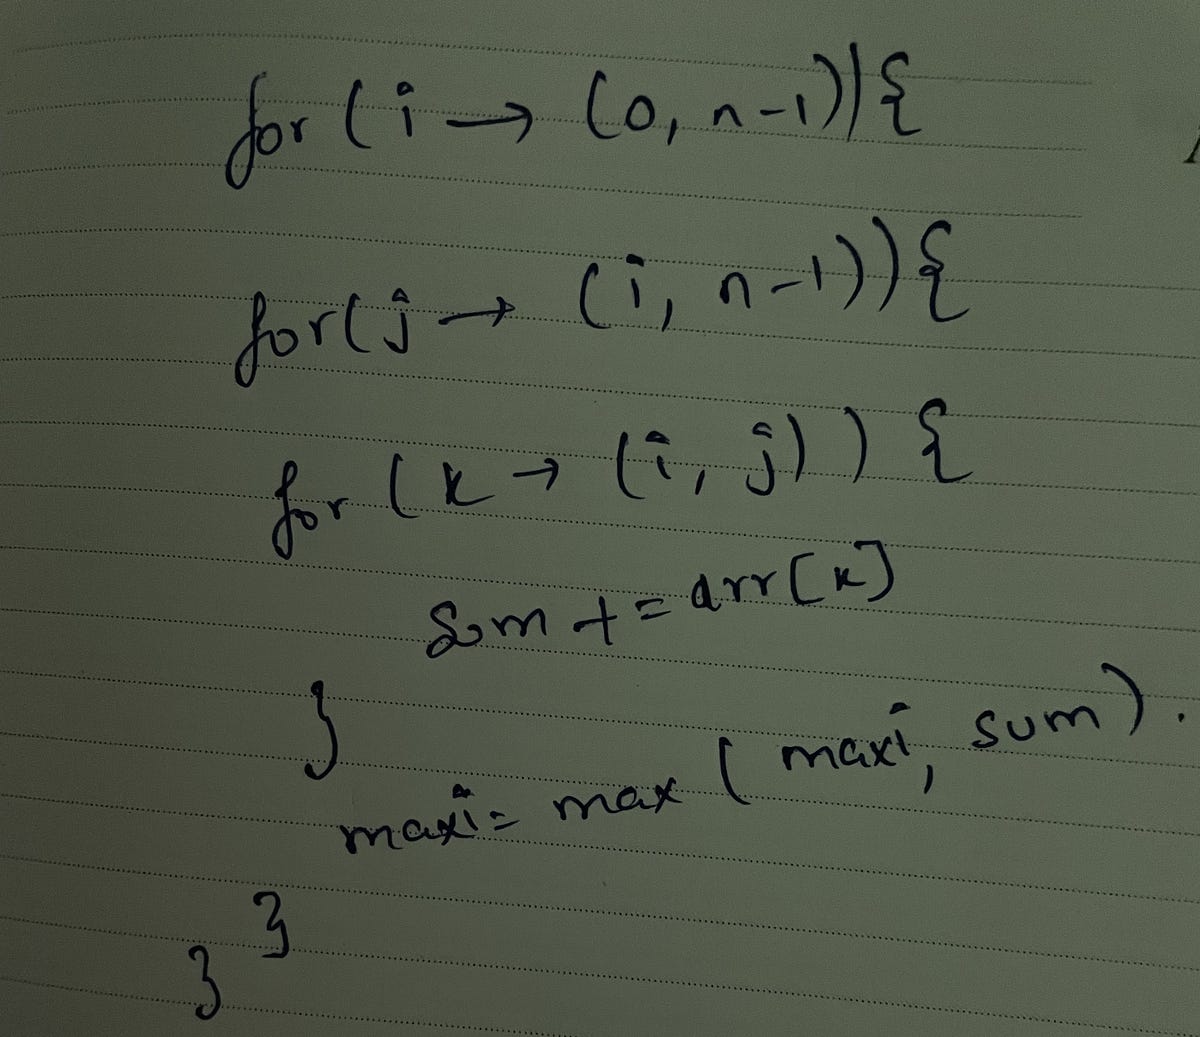 for (i → (0, n-1)) {
for(j → (i, n-1)) {
for (k → (i, j)) {
sum += arr[k]
}
maxi = max (maxi, sum).
}
}